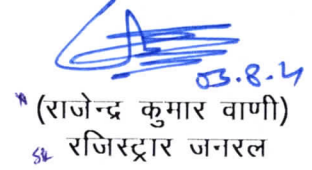 03.8.21
(राजेन्द्र कुमार वाणी)
रजिस्ट्रार जनरल